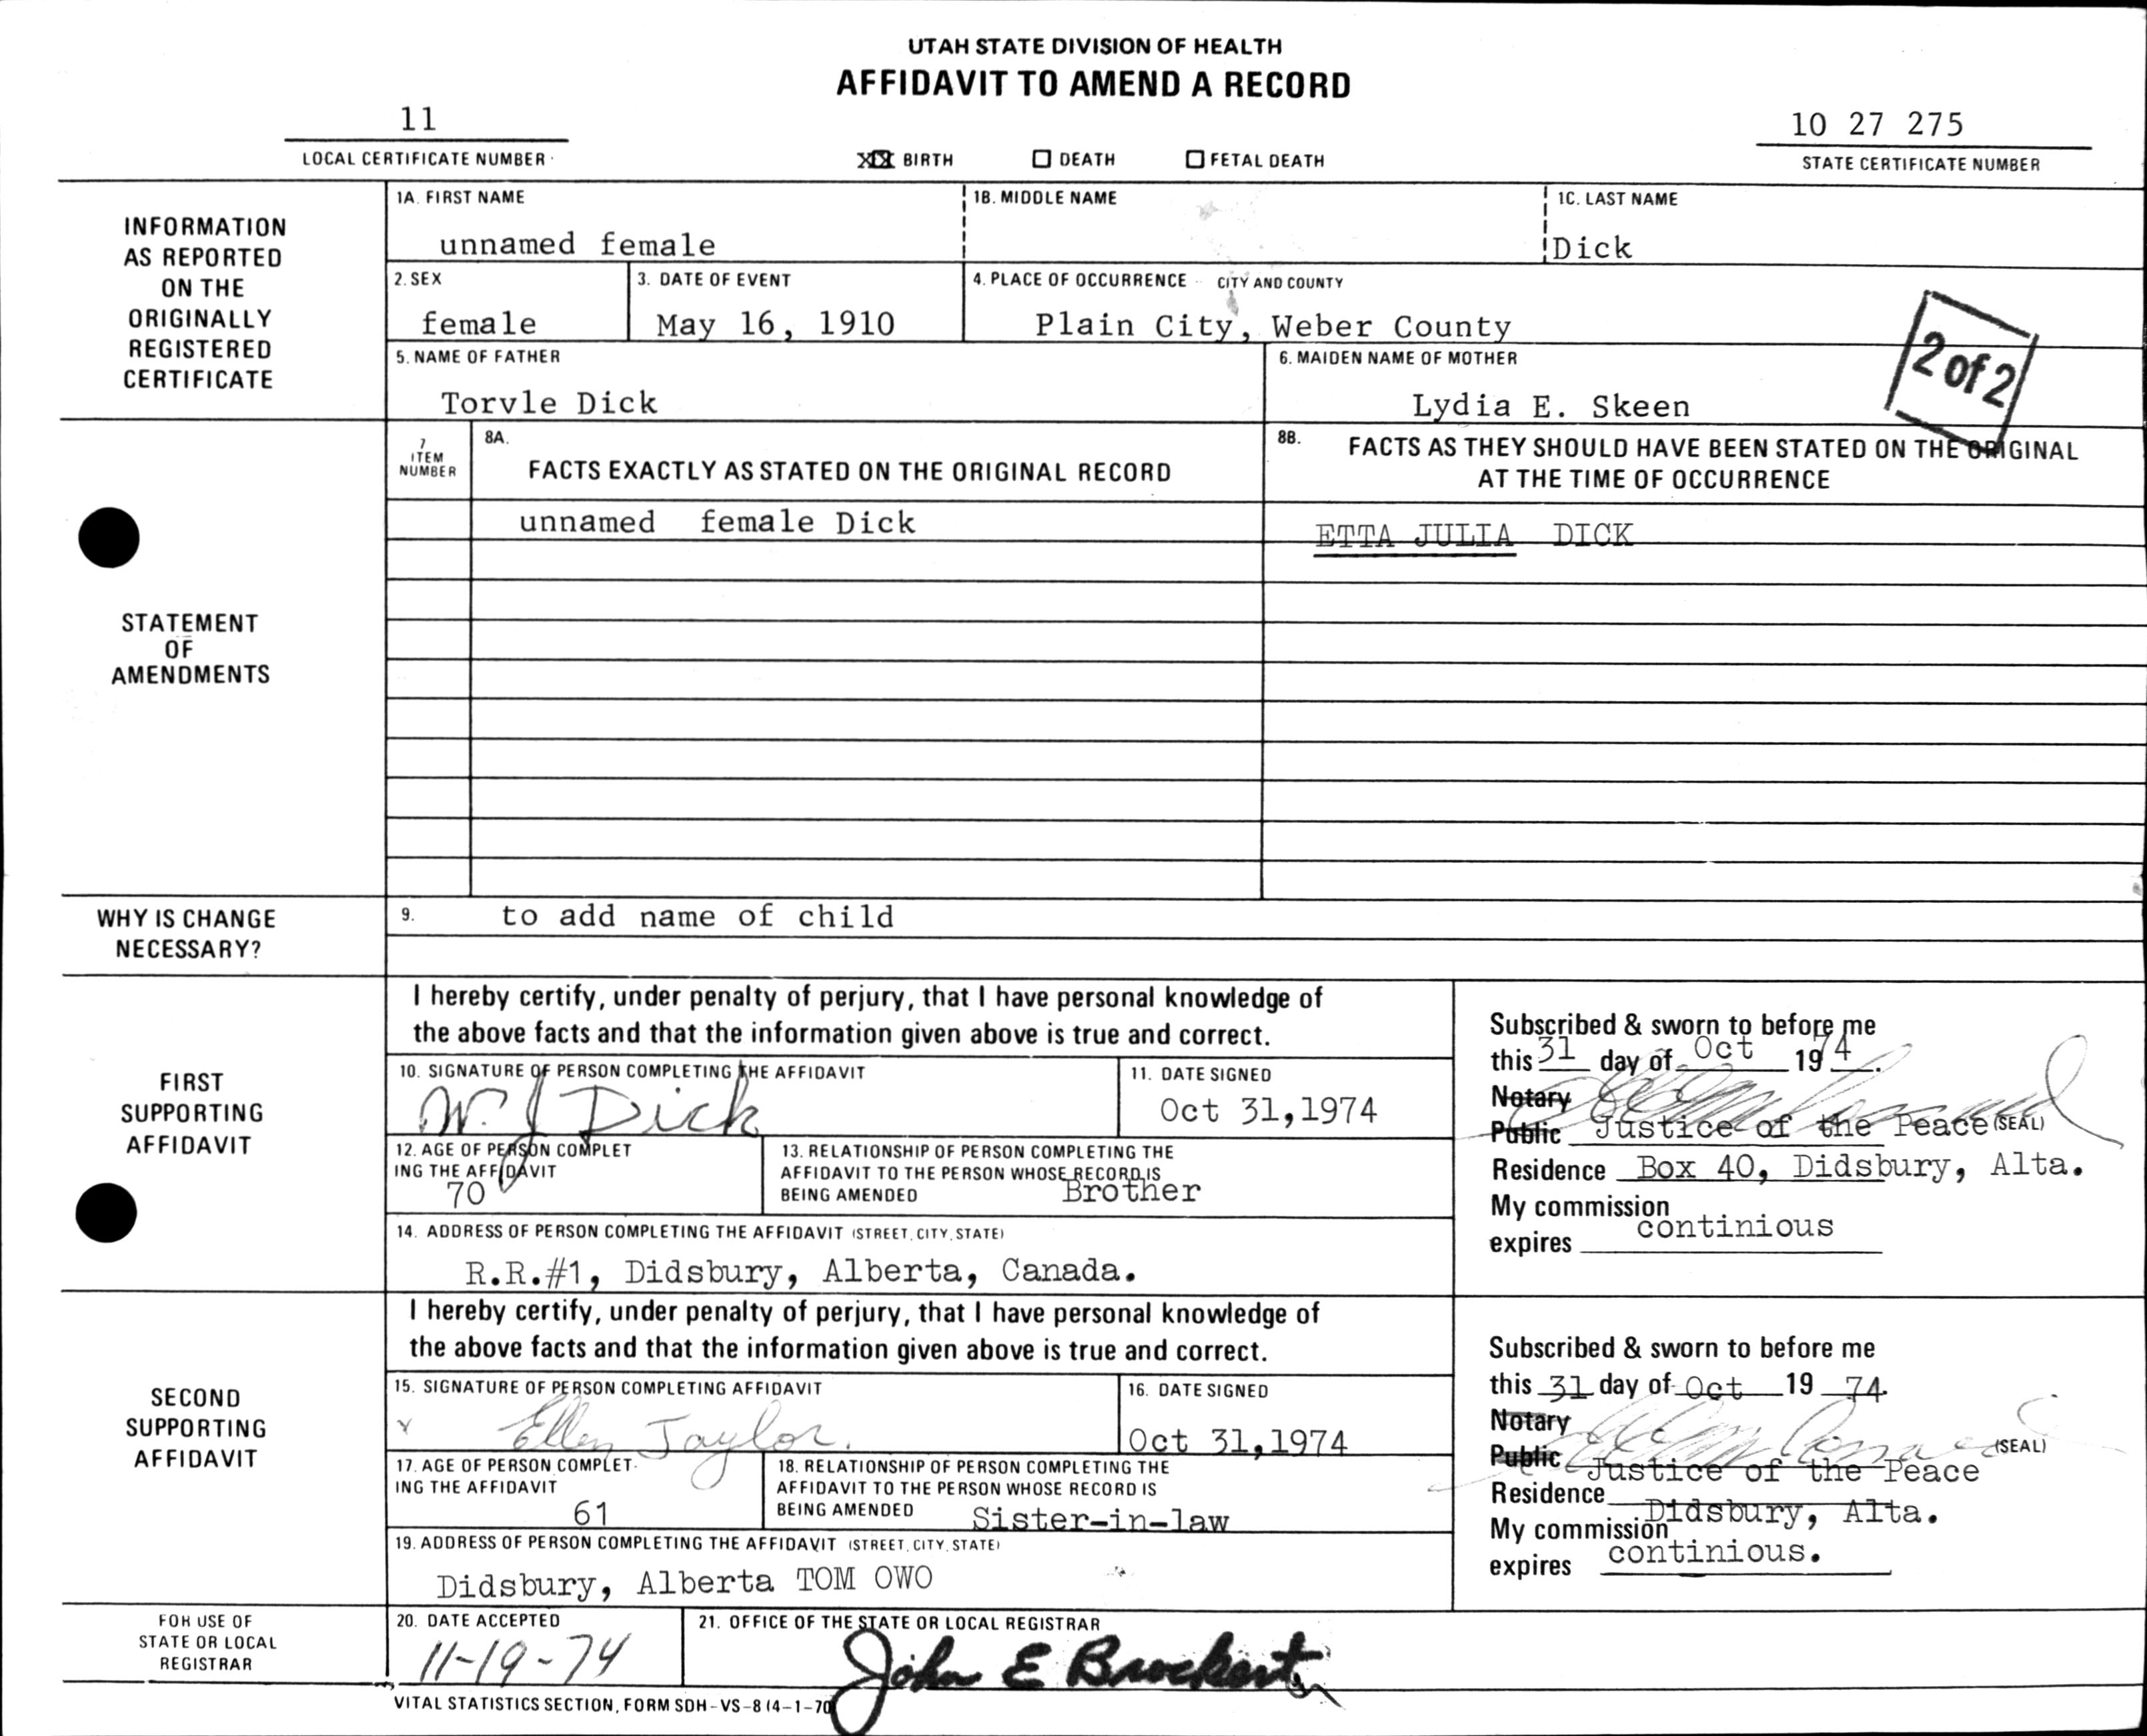 UTAH STATE DIVISION OF HEALTH
AFFIDAVIT TO AMEND A RECORD
11
LOCAL CERTIFICATE NUMBER
XX BIRTH DEATH FETAL DEATH
10 27 275
STATE CERTIFICATE NUMBER
INFORMATION
AS REPORTED
ON THE
ORIGINALLY
REGISTERED
CERTIFICATE
1A. FIRST NAME
unnamed female
1B. MIDDLE NAME
1C. LAST NAME
Dick
2. SEX
female
3. DATE OF EVENT
May 16, 1910
4. PLACE OF OCCURRENCE CITY AND COUNTY
Plain City, Weber County
5. NAME OF FATHER
Torvle Dick
6. MAIDEN NAME OF MOTHER
Lydia E. Skeen
2 of 2
STATEMENT
OF
AMENDMENTS
7
ITEM
NUMBER
8A.
FACTS EXACTLY AS STATED ON THE ORIGINAL RECORD
8B.
FACTS AS THEY SHOULD HAVE BEEN STATED ON THE ORIGINAL
AT THE TIME OF OCCURRENCE
unnamed female Dick
ETTA JULIA DICK
WHY IS CHANGE
NECESSARY?
9. to add name of child
FIRST
SUPPORTING
AFFIDAVIT
I hereby certify, under penalty of perjury, that I have personal knowledge of
the above facts and that the information given above is true and correct.
10. SIGNATURE OF PERSON COMPLETING THE AFFIDAVIT
W. J Dick
11. DATE SIGNED
Oct 31,1974
12. AGE OF PERSON COMPLET
ING THE AFFIDAVIT
70
13. RELATIONSHIP OF PERSON COMPLETING THE
AFFIDAVIT TO THE PERSON WHOSE RECORD IS
BEING AMENDED Brother
14. ADDRESS OF PERSON COMPLETING THE AFFIDAVIT (STREET, CITY, STATE)
R.R.#1, Didsbury, Alberta, Canada.
Subscribed & sworn to before me
this 31 day of Oct 1974.
Notary
Public Justice of the Peace (SEAL)
Residence Box 40, Didsbury, Alta.
My commission
expires continious
SECOND
SUPPORTING
AFFIDAVIT
I hereby certify, under penalty of perjury, that I have personal knowledge of
the above facts and that the information given above is true and correct.
15. SIGNATURE OF PERSON COMPLETING AFFIDAVIT
x Ellen Taylor.
16. DATE SIGNED
Oct 31,1974
17. AGE OF PERSON COMPLET-
ING THE AFFIDAVIT
61
18. RELATIONSHIP OF PERSON COMPLETING THE
AFFIDAVIT TO THE PERSON WHOSE RECORD IS
BEING AMENDED Sister-in-law
19. ADDRESS OF PERSON COMPLETING THE AFFIDAVIT (STREET, CITY, STATE)
Didsbury, Alberta TOM OWO
Subscribed & sworn to before me
this 31 day of Oct 19 74.
Notary
Public Justice of the Peace (SEAL)
Residence Didsbury, Alta.
My commission
expires continious.
FOR USE OF
STATE OR LOCAL
REGISTRAR
20. DATE ACCEPTED
11-19-74
21. OFFICE OF THE STATE OR LOCAL REGISTRAR
John E Brockert
VITAL STATISTICS SECTION, FORM SDH-VS-8 (4-1-70